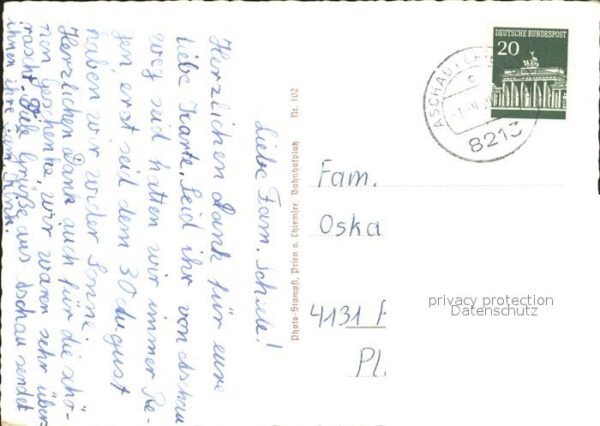 Liebe Fam. Schiele!
Herzlichen Dank für eure
liebe Karte. Seid ihr von Aschau
weg seid hatten wir immer Re-
gen, erst seid dem 30 August
haben wir wider Sonne.
Herzlichen Dank auch für die schö-
nen Geschenke, wir waren sehr über-
rascht. Viele Grüße aus Aschau sendet
ihnen Ihre
Photo-Stampfl, Prien a. Chiemsee Bahnhofplatz Nr. 102
DEUTSCHE BUNDESPOST
20
ASCHAU
8213
Fam.
Oska
4131
Pl.
privacy protection
Datenschutz